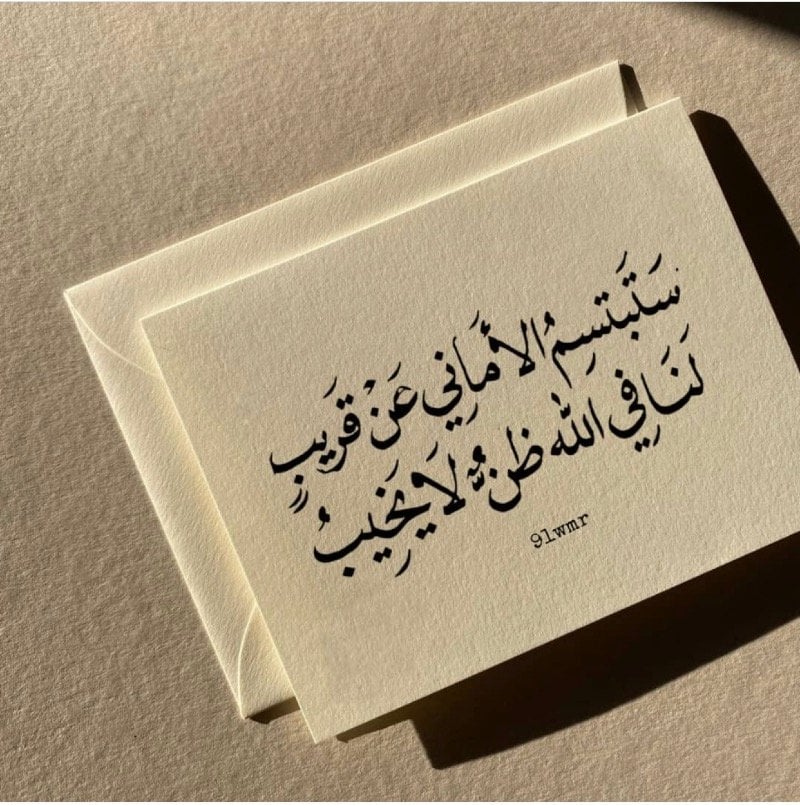 سَتَبتَسِمُ الأَمَانِي عَنْ قَرِيبٍ
لَنَا فِي الله ظَنٌّ لَا يَخِيبُ
91wmr